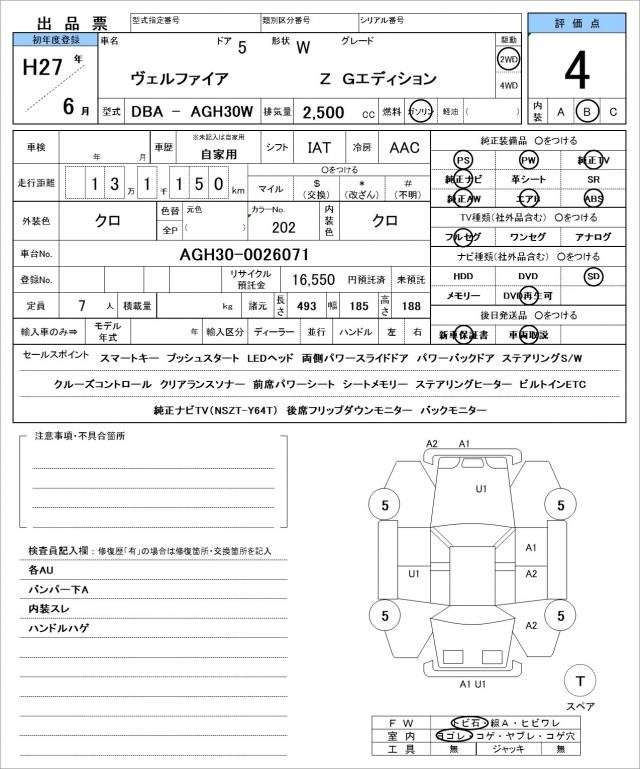 出品票 型式指定番号 類別区分番号 シリアル番号 評価点
初年度登録 車名 ドア 5 形状 W グレード 駆動
H27 年 ヴェルファイア Z Gエディション 2WD 4
6 月 4WD
型式 DBA － AGH30W 排気量 2,500 CC 燃料 ガソリン 軽油 ( ) 内装 A B C
車検 年 月 車歴 ※未記入は自家用 自家用 シフト IAT 冷房 AAC 純正装備品 〇をつける
PS PW 純正TV
走行距離 13 万 1 千 150 km 〇をつける マイル $ (交換) * (改ざん) # (不明) 純正ナビ 革シート SR
純正AW エアB ABS
外装色 クロ 色替 元色 全P ( ) カラーNo. 202 内装色 クロ TV種類(社外品含む) 〇をつける
フルセグ ワンセグ アナログ
車台No. AGH30-0026071 ナビ種類(社外品含む) 〇をつける
登録No. リサイクル預託金 16,550 円預託済 未預託 HDD DVD SD
定員 7 人 積載量 kg 諸元 長さ 493 幅 185 高さ 188 メモリー DVD再生可
後日発送品 〇をつける
輸入車のみ⇒ モデル年式 年 輸入区分 ディーラー 並行 ハンドル 左 右 新車保証書 車両取説
セールスポイント スマートキー プッシュスタート LEDヘッド 両側パワースライドドア パワーバックドア ステアリングS/W
クルーズコントロール クリアランスソナー 前席パワーシート シートメモリー ステアリングヒーター ビルトインETC
純正ナビTV(NSZT-Y64T) 後席フリップダウンモニター バックモニター
注意事項・不具合箇所
検査員記入欄：修復歴「有」の場合は修復箇所・交換箇所を記入
各AU
バンパー下A
内装スレ
ハンドルハゲ
A2 A1
U1
5 5
A1
U1 A2
5 A2 5
A1 U1
T
スペア
FW トビ石・線A・ヒビワレ
室内 ヨゴレ・コゲ・ヤブレ・コゲ穴
工具 無 ジャッキ 無